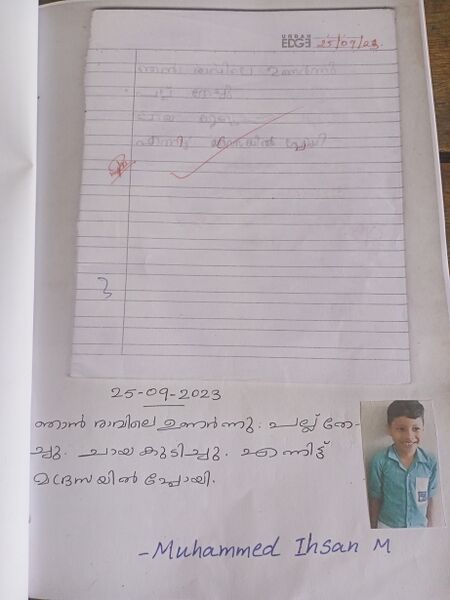 URBAN
EDGE 25/09/23
ഞാൻ രാവിലെ ഉണർന്നു
പല്ല് തേച്ചു
ചായ
25-09-2023
ഞാൻ രാവിലെ ഉണർന്നു. പല്ല് തേ-
ച്ചു. ചായ കുടിച്ചു. എന്നിട്ട്
മദ്രസയിൽ പ്പോയി.
-Muhammed Ihsan M